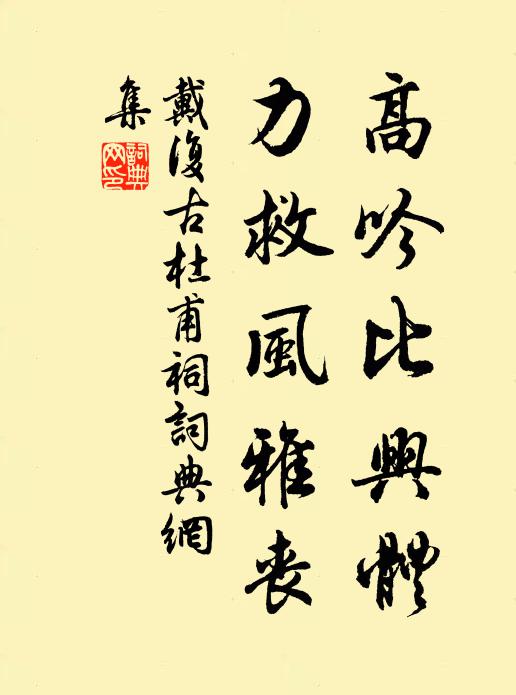 高吟比興體
力救風雅喪
戴復古杜甫祠詞典網
集
詞典網印